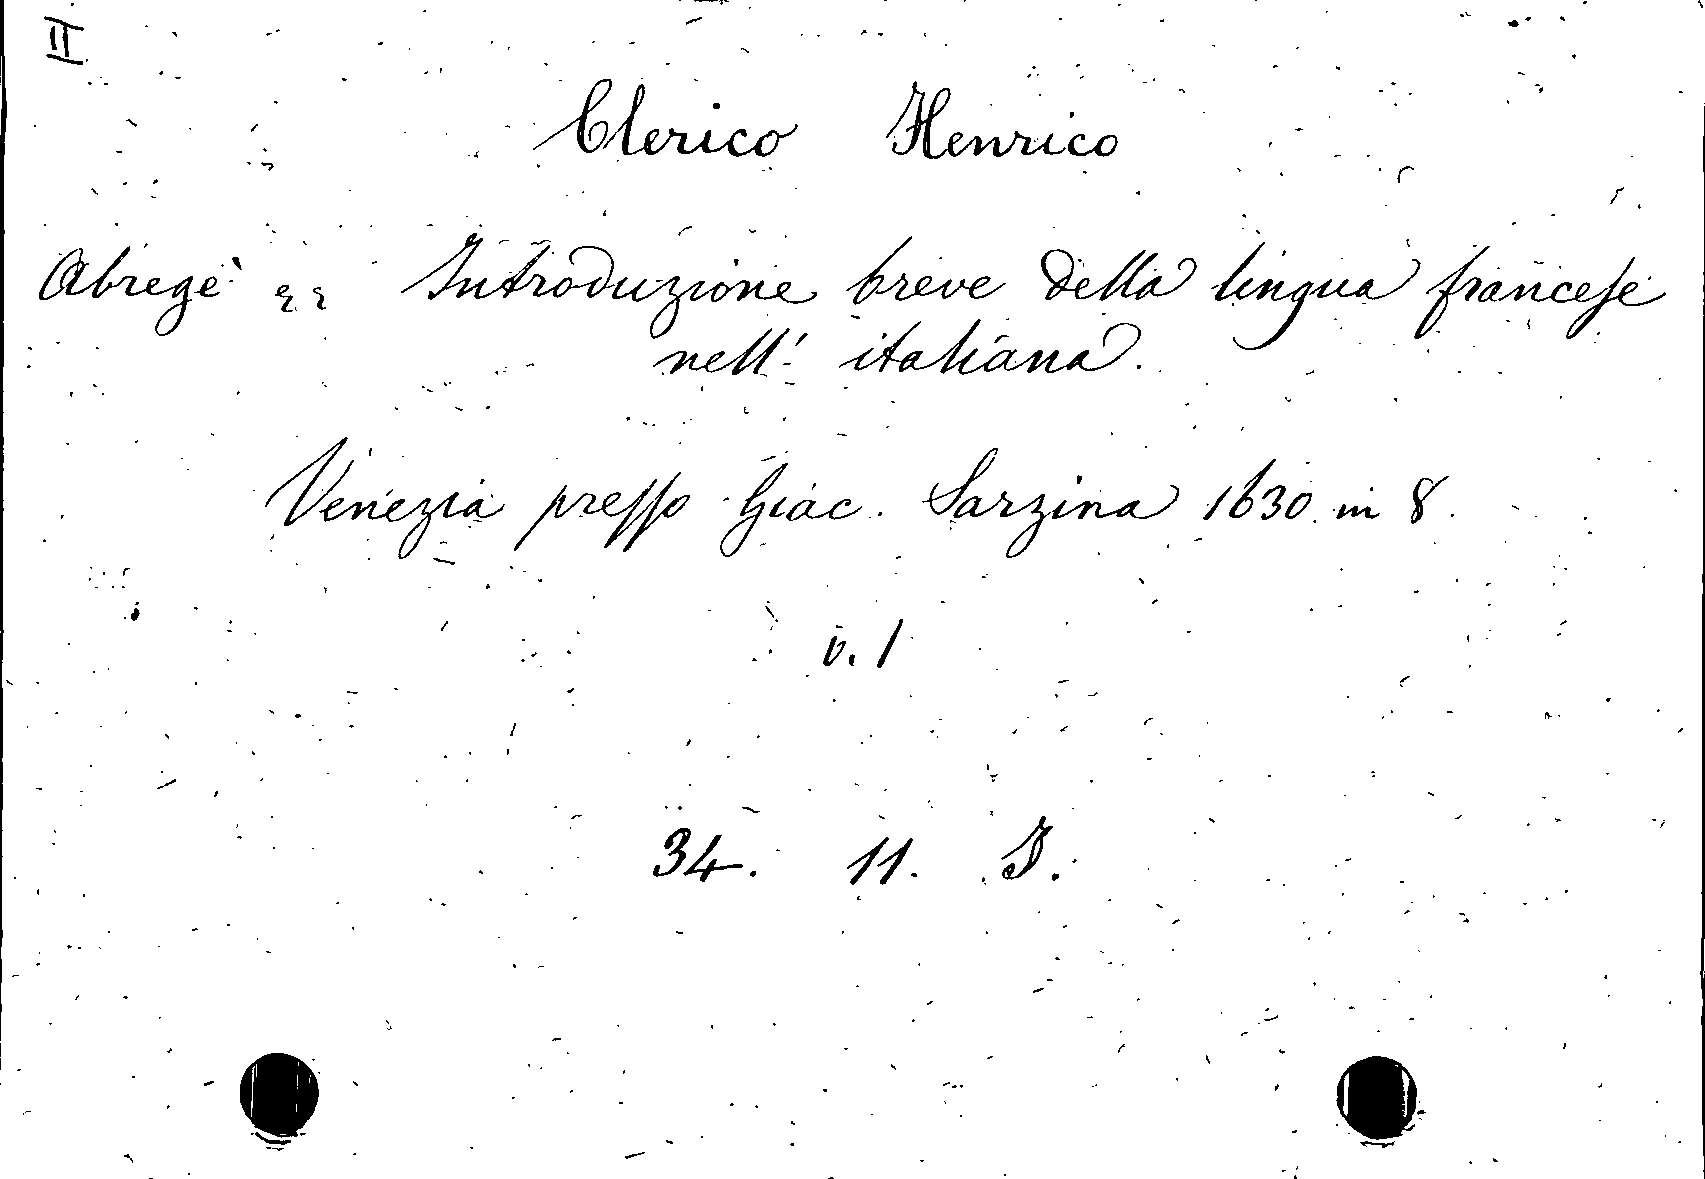 II
Clerico Henrico
Abregè Introduzione breve della lingua francese
nell' italiana.
Venezia presso Giac. Sarzina 1630 in 8.
v. 1
34. 11. I.